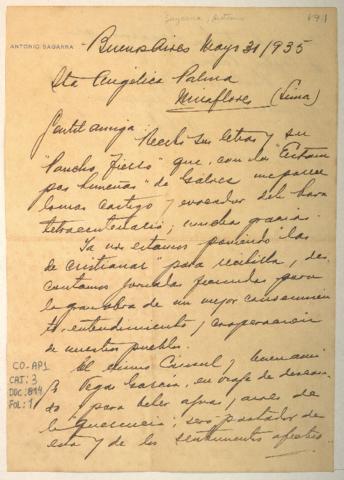 Sagarra, Antonio
191
ANTONIO SAGARRA
Buenos Aires Mayo 31/935
Sta Angélica Palma
Miraflores (Lima)
Gentil amiga: Recibo sus letras y su
"Pancho Fierro" que, con las "Estam
pas limeñas" de Galvez me parece
lo mas castigo y evocador del
tetracentenario; muchas gracias.
Ya nos estamos poniendo "las
de cristianar" para recibirla, des
contamos jornadas fecundas para
la gran obra de un mejor conocimien
to, entendimiento y cooperacion
de nuestros pueblos.
El mismo Consul, y buen ami
go Vega Garcia, en viaje de descan
so y para beber aguas, aires de
la Querencia; será portador de
esta y de los sentimientos afectuo
CO-AP1
CAT: 3
DOC: 894
FOL: 1